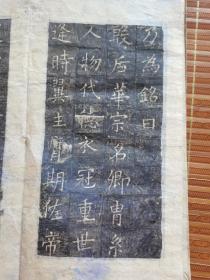 乃為銘曰
后華宗名卿胄系
人物代德衣冠重世
逢時翼主膺期佐帝